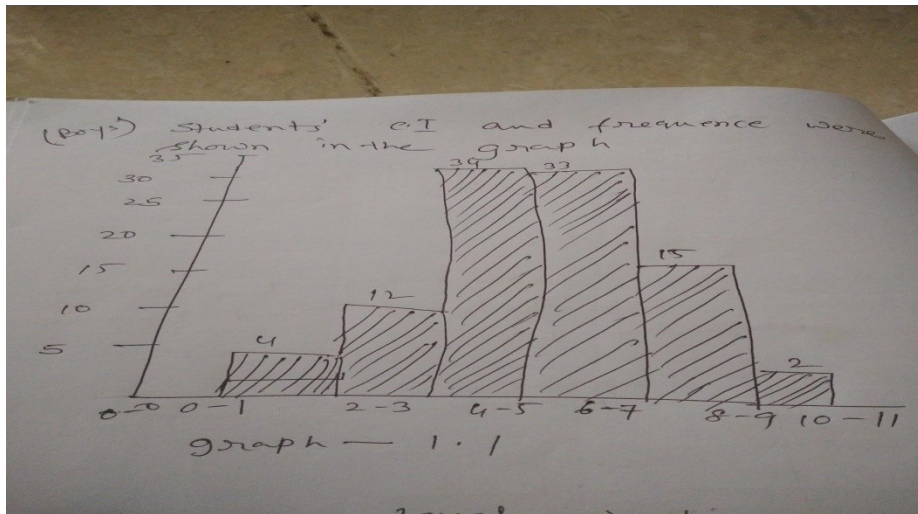 (Boys') Students' C.I and frequence were
shown in the graph
35
30
25
20
15
10
5
4
12
39
33
15
2
0-0 0-1 2-3 4-5 6-7 8-9 10-11
graph — 1.1